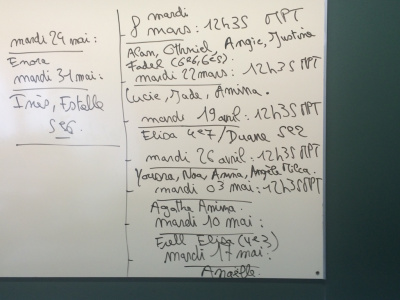 mardi 24 mai :
Enora
mardi 31 mai :
Inès, Estelle
5e6
8 mardi
mars : 12h35 MPT
Alan, Othniel, Angie, Justine
Fadel (6e6, 6e5)
mardi 22 mars : 12h35 MPT
Lucie, Jade, Amina.
mardi 19 avril : 12h35 MPT
Elisa 4e7 / Duane 5e2
mardi 26 avril : 12h35 MPT
Yousra, Noa, Amna, Angèle
mardi 03 mai : 12h35 MPT
Agatha Amina.
mardi 10 mai :
Elisa (4e3)
mardi 17 mai :
Anaëlle